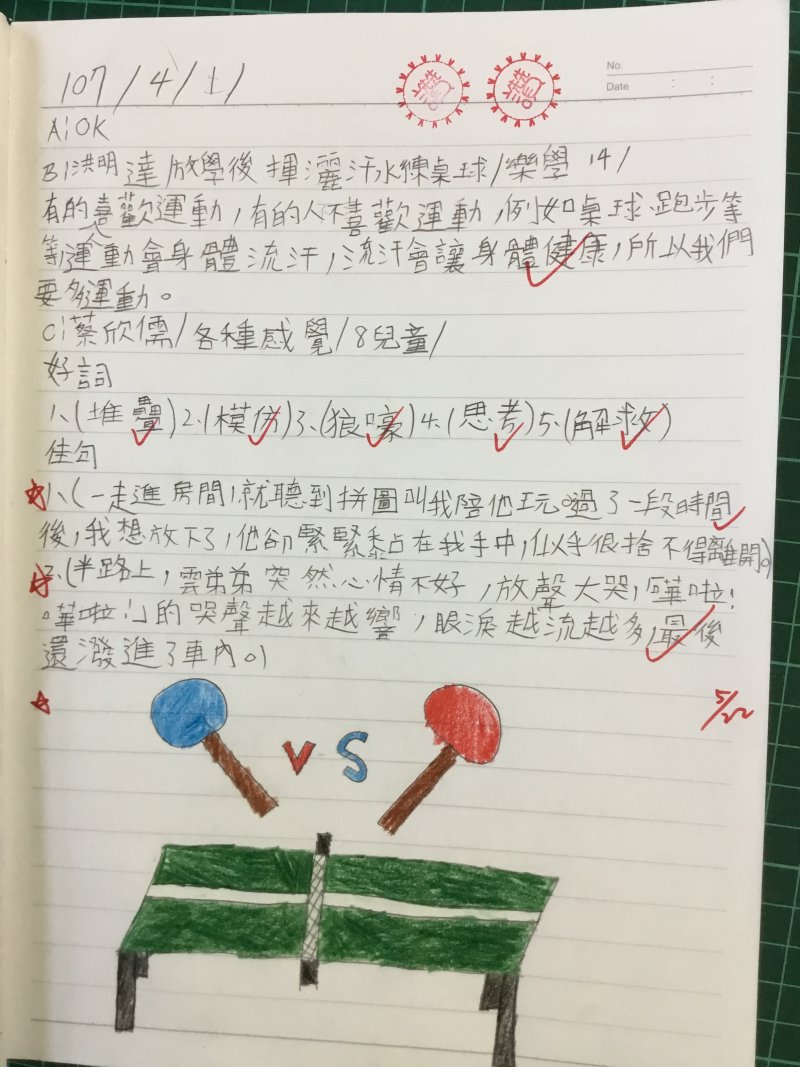 107/4/土/
讚 讚
No.
Date : :
A:OK
B:洪明達/放學後揮灑汗水練桌球/樂學14/
有的人喜歡運動,有的人不喜歡運動,例如桌球、跑步等
等,運動會身體流汗,流汗會讓身體健康,所以我們
要多運動。
C:蔡欣儒/各種感覺/8兒童/
好詞
1、(堆疊)2、(模仿)3、(狼嚎)4、(思考)5、(解救)
佳句
1、(一走進房間,就聽到拼圖叫我陪他玩。過了一段時間
後,我想放下了,他卻緊緊黏在我手中,似乎很捨不得離開。)
2、(半路上,雲弟弟突然心情不好,放聲大哭,「嘩啦!
嘩啦!」的哭聲越來越響,眼淚越流越多,最後
還潑進了車內。)
5/22
VS